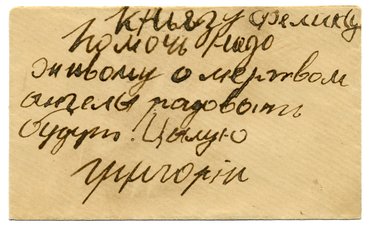 Князу Фелику
Помочь надо
живому о мертвом
ангелы радовать
будут. Цалую
Григорiи